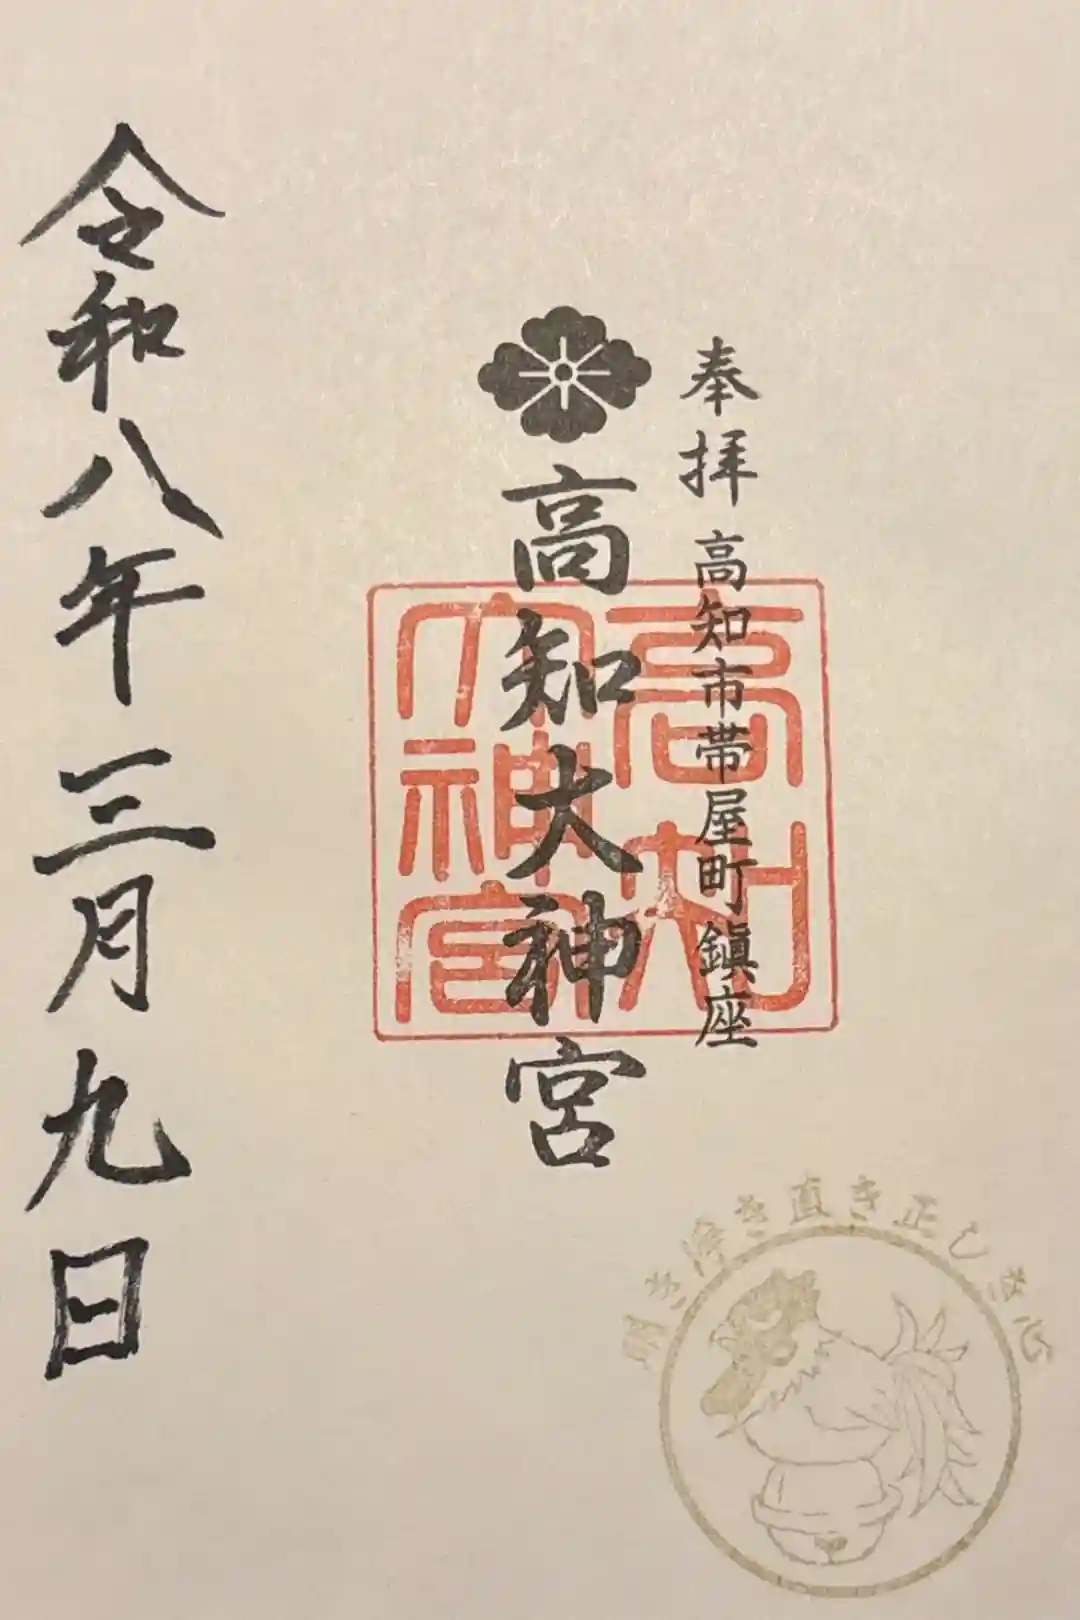 奉拝 高知市帯屋町鎮座
高知大神宮
高知大神宮
令和八年三月九日
明き浄き直き正しき心